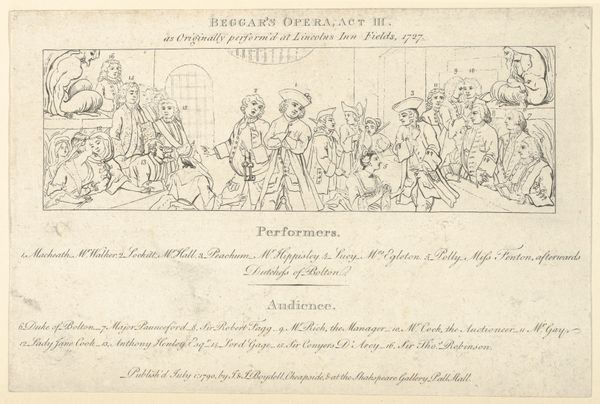 BEGGAR'S OPERA, ACT III.
as Originally perform'd at Lincolns Inn Fields, 1727.
Performers.
1, Macheath, Mr. Walker, 2, Lockitt, Mr. Hall, 3, Peachum, Mr. Hippisley, 4, Lucy, Mrs. Egleton, 5, Polly, Miss Fenton, afterwards
Dutchess of Bolton.
Audience.
6, Duke of Bolton_ 7, Major Paunceford_ 8, Sir Robert Fagg_ 9, Mr. Rich, the Manager_ 10, Mr. Cock, the Auctioneer_ 11, Mr. Gay_
12, Lady Jane Cook_ 13, Anthony Henley Esqr. 14, Lord Gage_ 15, Sir Conyers D'Arcy_ 16, Sir Thos. Robinson.
Publish'd July 1, 1790, by J. & J. Boydell, Cheapside, & at the Shakspeare Gallery, Pall Mall.